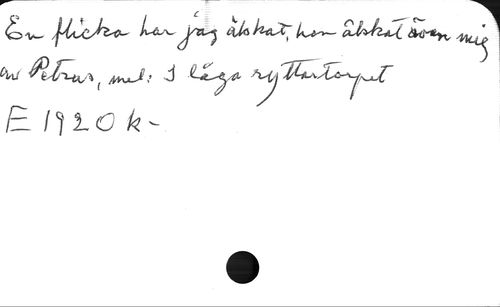 En flicka har jag älskat, hon älskat även mig
av Petrus, mel: I låga ryttartorpet
E 1920 k-